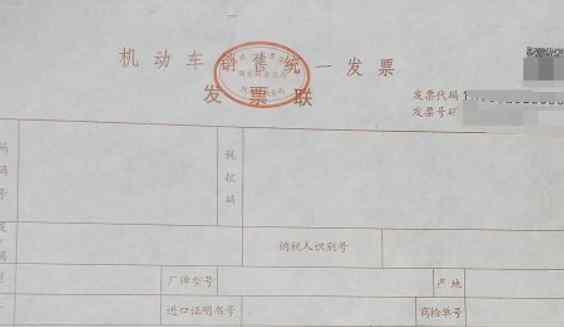 机动车销售统一发票
发票联
发票代码
发票号码
税控码
纳税人识别号
厂牌型号
产地
进口证明书号
商检单号